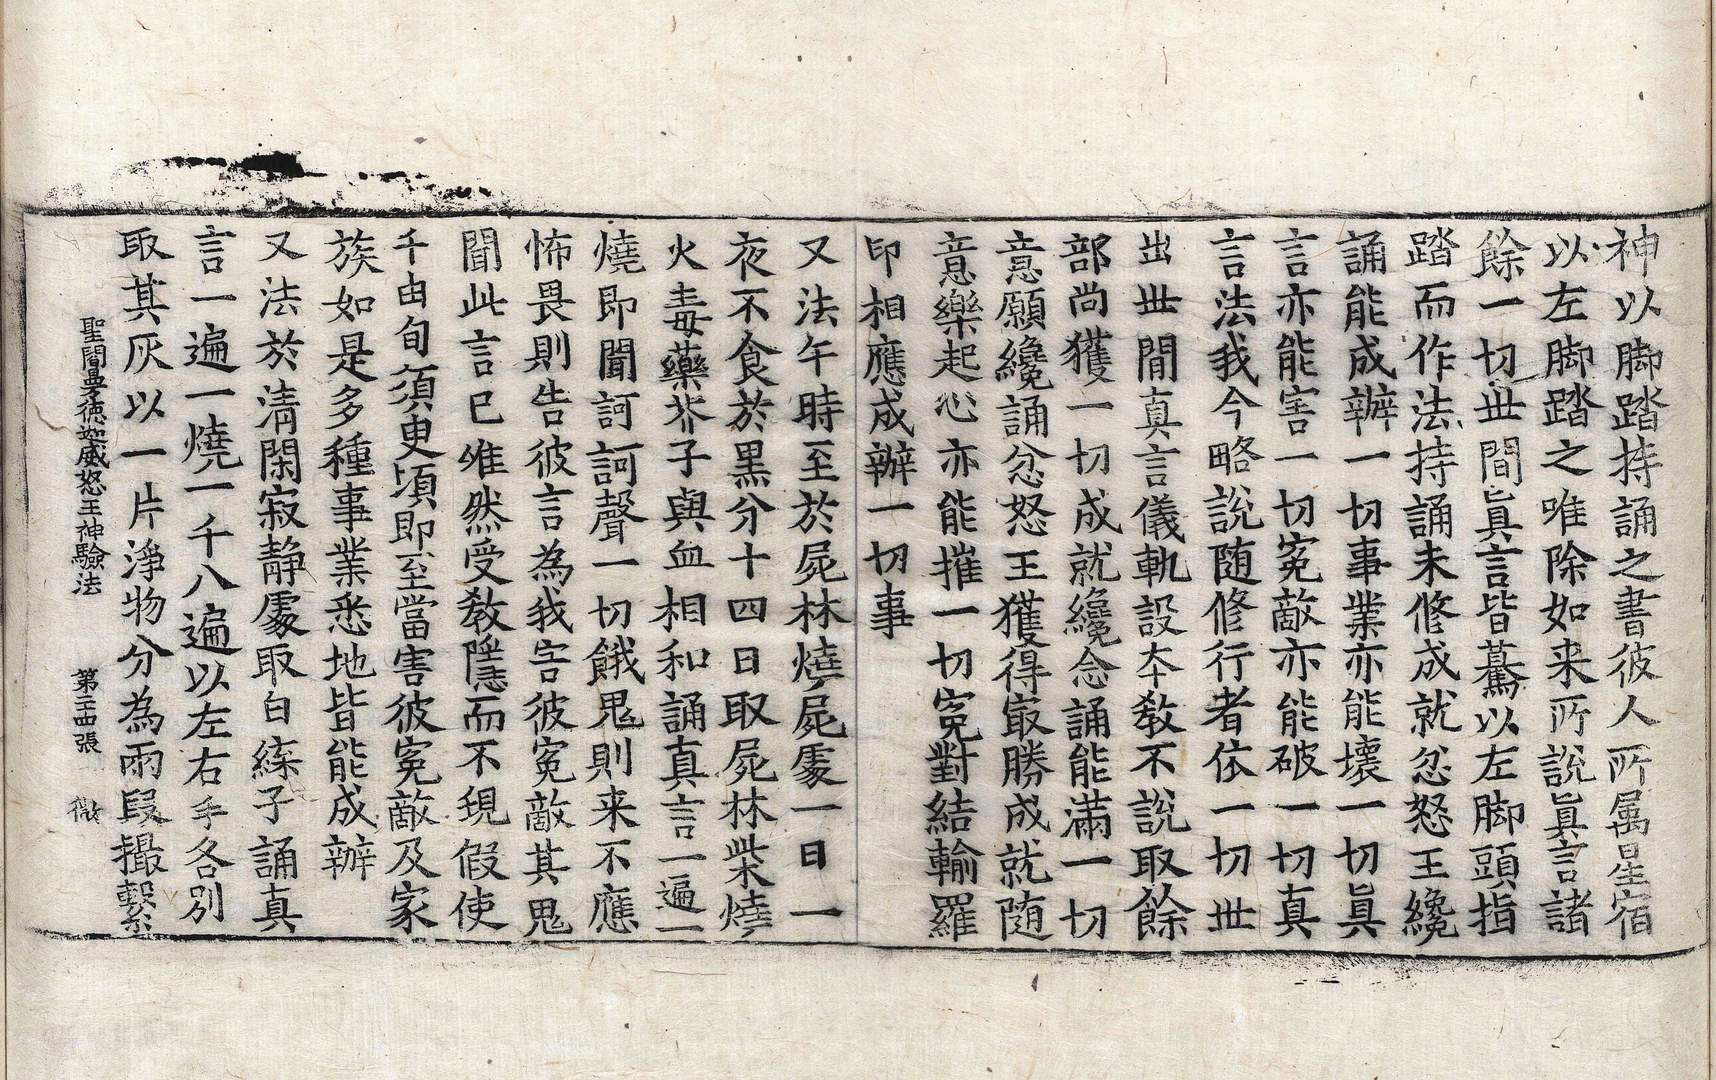 神以脚踏持誦之書彼人所属星宿
以左脚踏之唯除如来所説眞言諸
餘一切世間眞言皆驀以左脚頭指
踏而作法持誦未修成就忿怒王纔
誦能成辦一切事業亦能壞一切眞
言亦能害一切寃敵亦能破一切真
言法我今略説随修行者依一切世
出世間真言儀軌設夲教不説取餘
部尚獲一切成就纔念誦能滿一切
意願纔誦忿怒王獲得㝡勝成就随
意樂起心亦能摧一切寃對結輸羅
印相應成辦一切事
又法午時至於屍林燒屍處一日一
夜不食於黒分十四日取屍林柴燒
火毒藥芥子與血相和誦真言一遍一
燒即聞訶訶聲一切餓鬼則来不應
怖畏則告彼言為我害彼寃敵其鬼
聞此言已唯然受教隱而不現假使
千由旬須臾頃即至當害彼寃敵及家
族如是多種事業悉地皆能成辦
又法於清閑寂静處取白練子誦真
言一遍一燒一千八遍以左右手各別
取其灰以一片淨物分為兩叚撮繫
聖閻曼德迦威怒王神驗法 第二四張 㣲